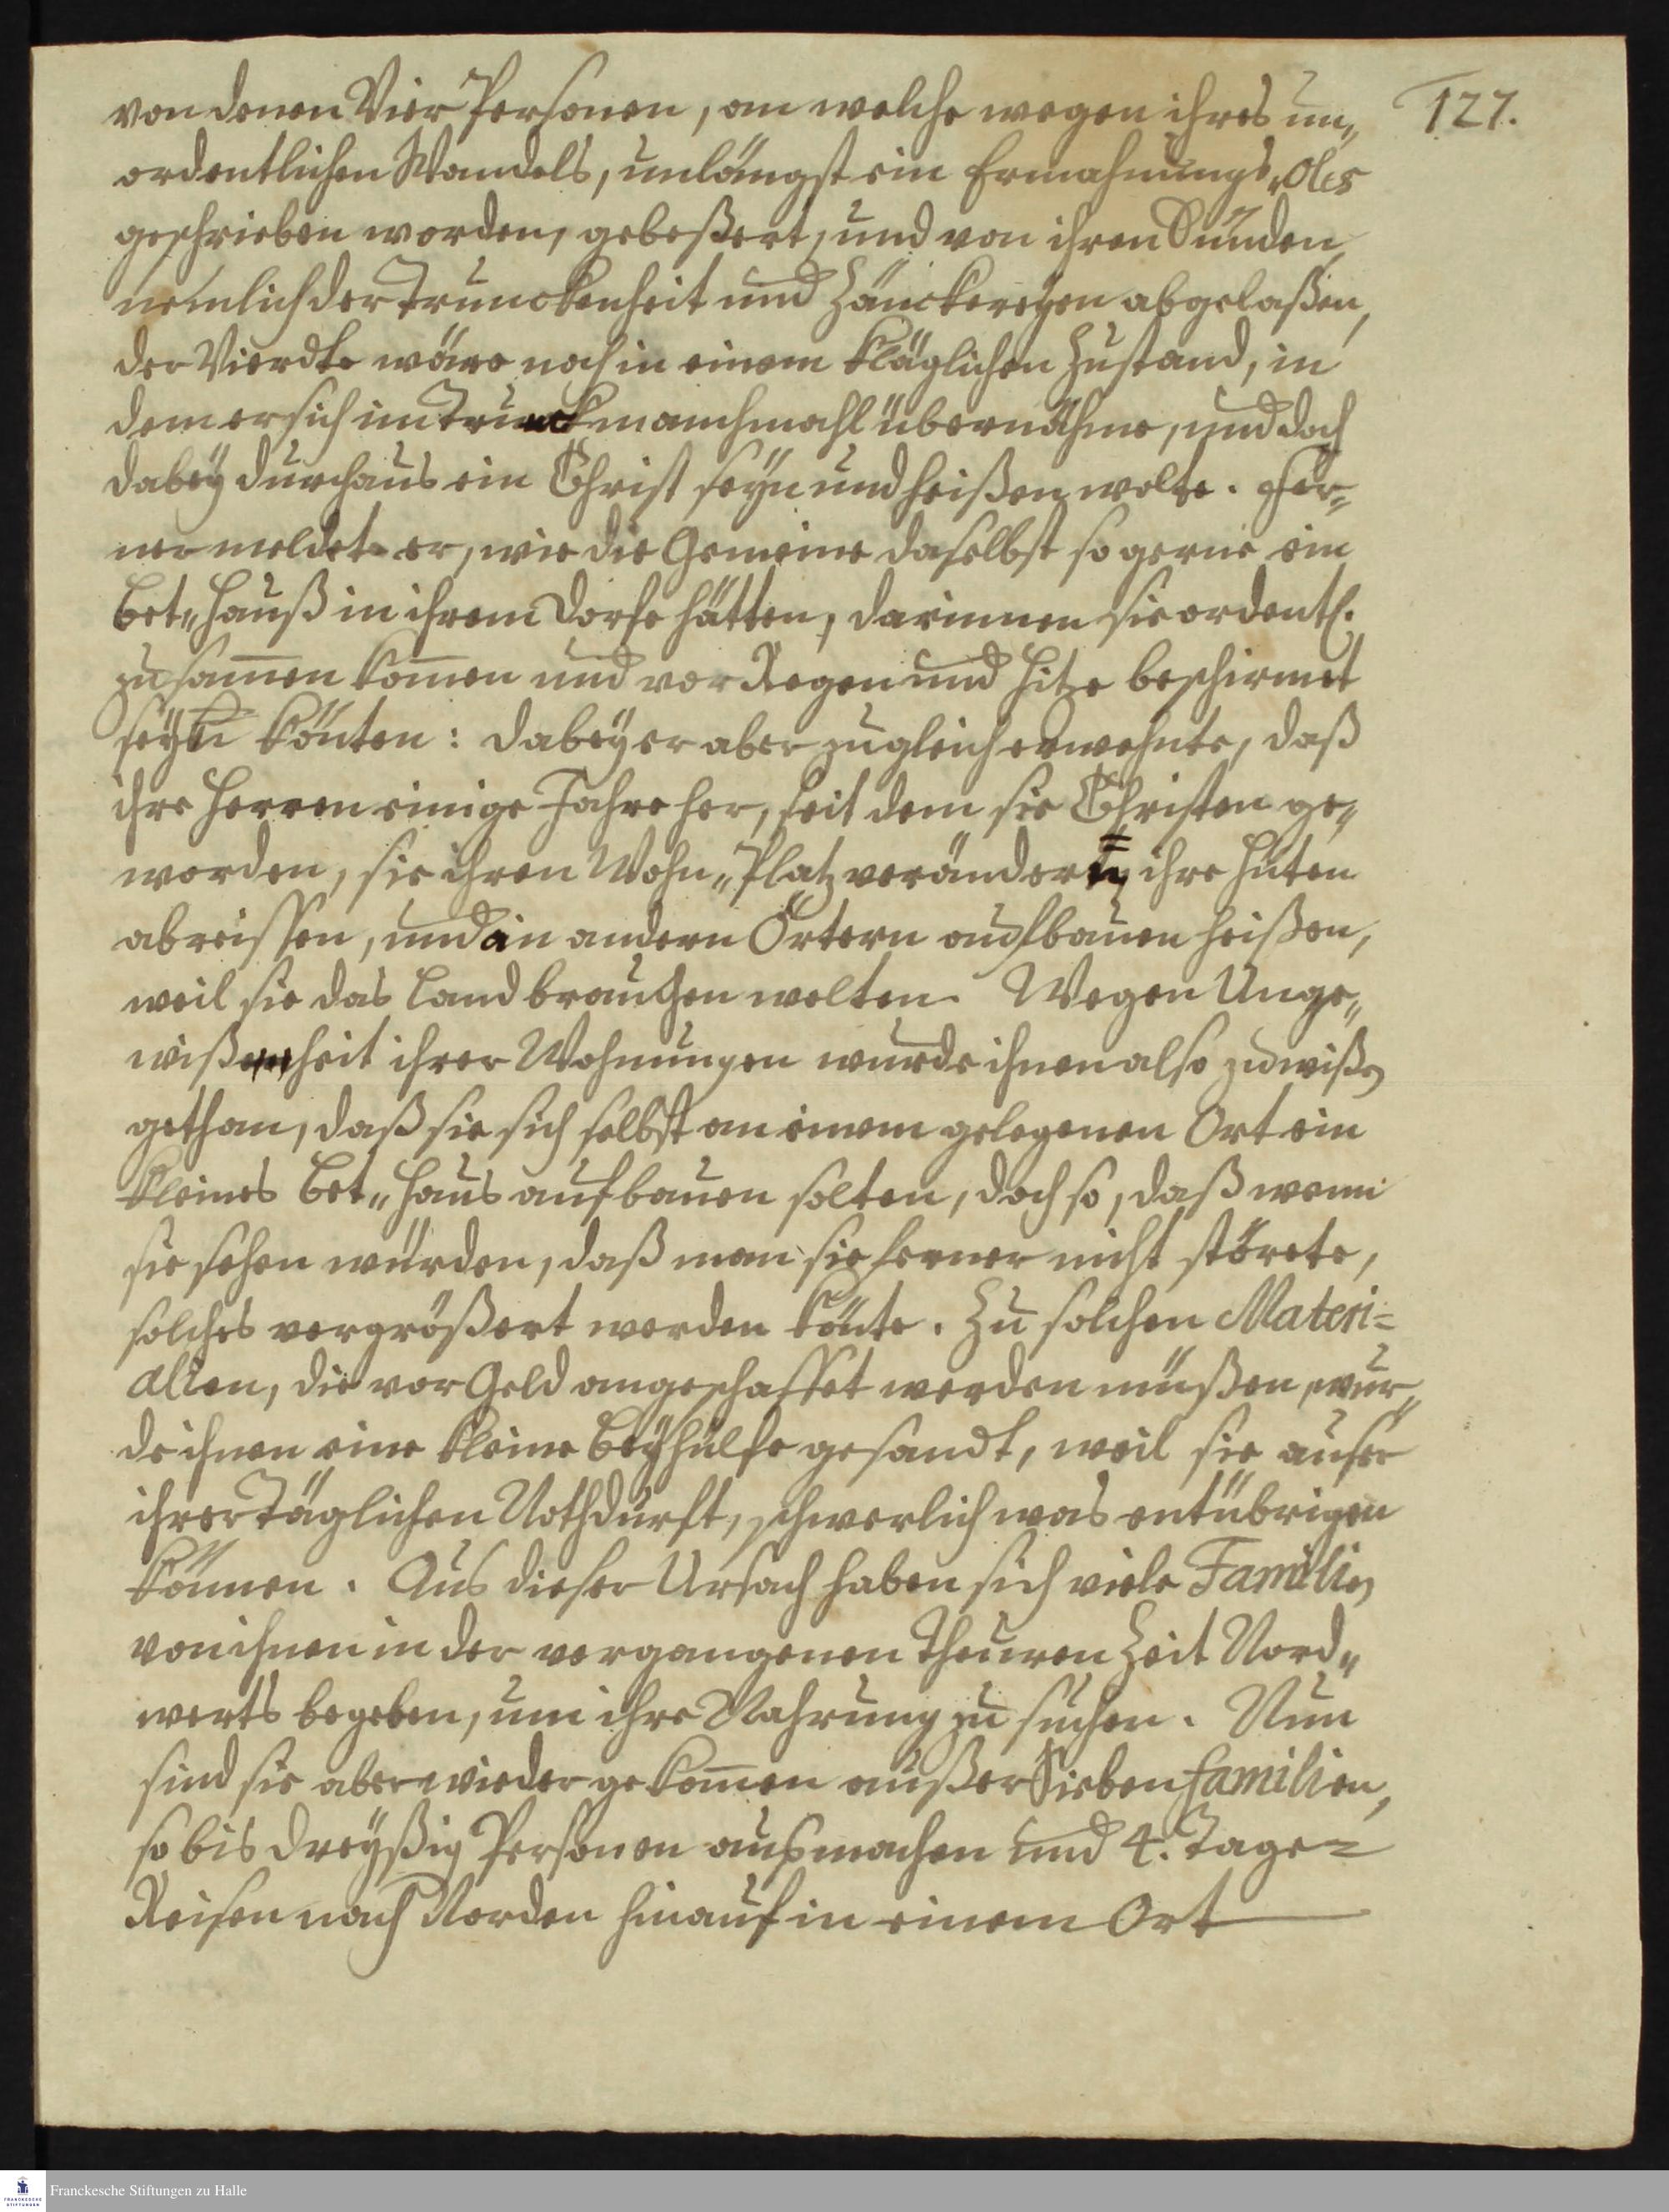 127.
von denen Vier Personen, an welche wegen ihres un„
ordentlichen Wandels, unlängst ein Ermahnungs„Oles
geschrieben worden, gebeßert, und von ihren Sünden,
nemlich der Trunckenheit und Zänckereyen abgelaßen,
der Vierdte wäre noch in einem kläglichen Zustand, in
dem er sich im Trunck manchmahl übernähme, und doch
dabey durchaus ein Christ seyn und heißen wolte. Fer„
ner meldete er, wie die Gemeine daselbst so gerne ein
Bet„Hauß in ihrem Dorfe hätten, darinnen sie ordentl.
zusam̄en kom̄en und vor Regen und Hitze beschirmet
seyn könten: dabey er aber zugleich erwehnte, daß
ihre Herren einige Jahre her, seit dem sie Christen ge„
worden, sie ihren Wohn„Platz verändern, ihre Hüten
abreissen, und in andern Örtern aufbauen heißen,
weil sie das Land brauchen wolten. Wegen Unge„
wißenheit ihrer Wohnungen wurde ihnen also zu wißen
gethan, daß sie sich selbst an einem gelegenen Ort ein
kleines Bet„Haus aufbauen solten, doch so, daß wenn
sie sehen würden, daß man sie ferner nicht störete,
solches vergrößert werden könte. Zu solchen Materi=
alien, die vor Geld angeschaffet werden müßen, wur„
de ihnen eine kleine Beyhülfe gesandt, weil sie auser
ihrer Täglichen Nothdurft, schwerlich was entübrigen
können. Aus dieser Ursach haben sich viele Familien
von ihnen in der vergangenen Theuren Zeit Nord„
werts begeben, um ihre Nahrung zu suchen. Nun
sind sie aber wieder gekom̄en außer Sieben familien,
so bis dreyßig Personen ausmachen und 4. Tage=
Reisen nach Norden hinauf in einem Ort
Franckesche Stiftungen zu Halle